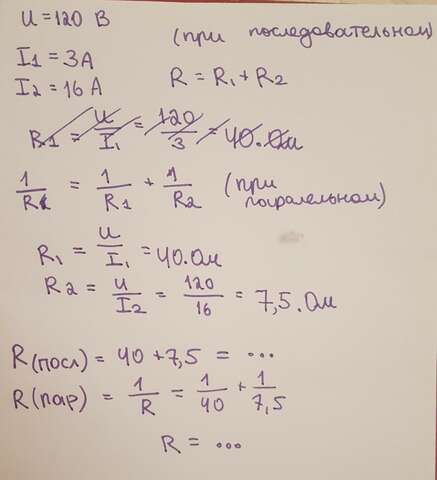 U = 120 В
(при последовательном)
I1 = 3 А
I2 = 16 А
R = R1 + R2
R1 = U/I1 = 120/3 = 40. Ом
1/R = 1/R1 + 1/R2 (при
паралельном)
R1 = U/I1 = 40. Ом
R2 = U/I2 = 120/16 = 7,5. Ом
R(посл) = 40 + 7,5 = ...
R(пар) = 1/R = 1/40 + 1/7,5
R = ...